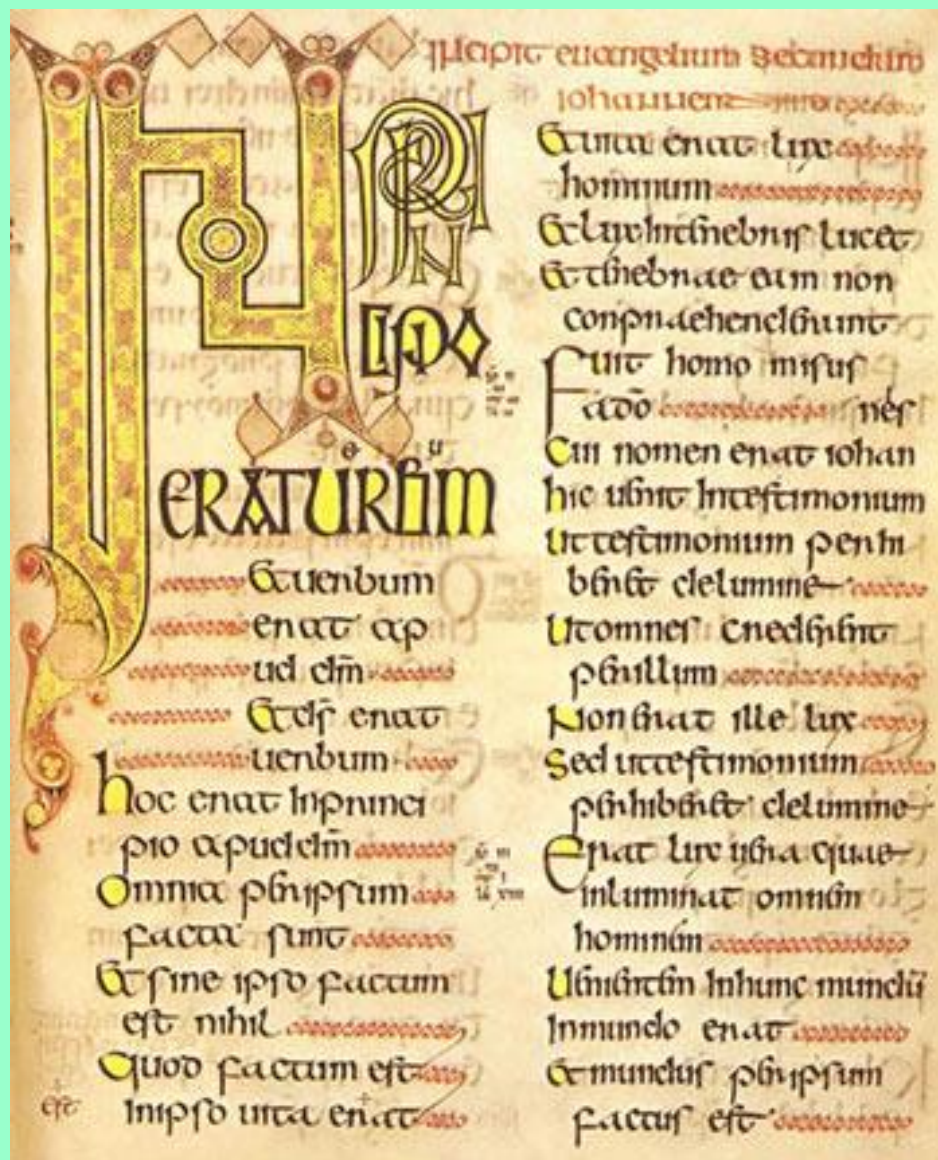 Incipit euangelium secundum
iohannem
IN PRIN
CIPIO
ERAT UERBUM
Et uerbum
erat ap
ud dm̄
Et ds̄ erat
uerbum
hoc erat In princi
pio apud dm̄
Omnia per ipsum
facta sunt
Et sine ipso factum
est nihil
Quod factum est
In ipso uita erat
est
Et uita erat lux
hominum
Et lux In tenebris lucet
Et tenebrae eam non
conpraehenderunt
Fuit homo misus
a dō nes
Cui nomen erat iohan
hic uenit In testimonium
Ut testimonium perhi
beret de lumine
Ut omnes crederent
per illum
Non erat ille lux
Sed ut testimonium
perhiberet de lumine
Erat lux uera quae
inluminat omnem
hominem
Uenientem In hunc mundū
In mundo erat
Et mundus per ipsum
factus est